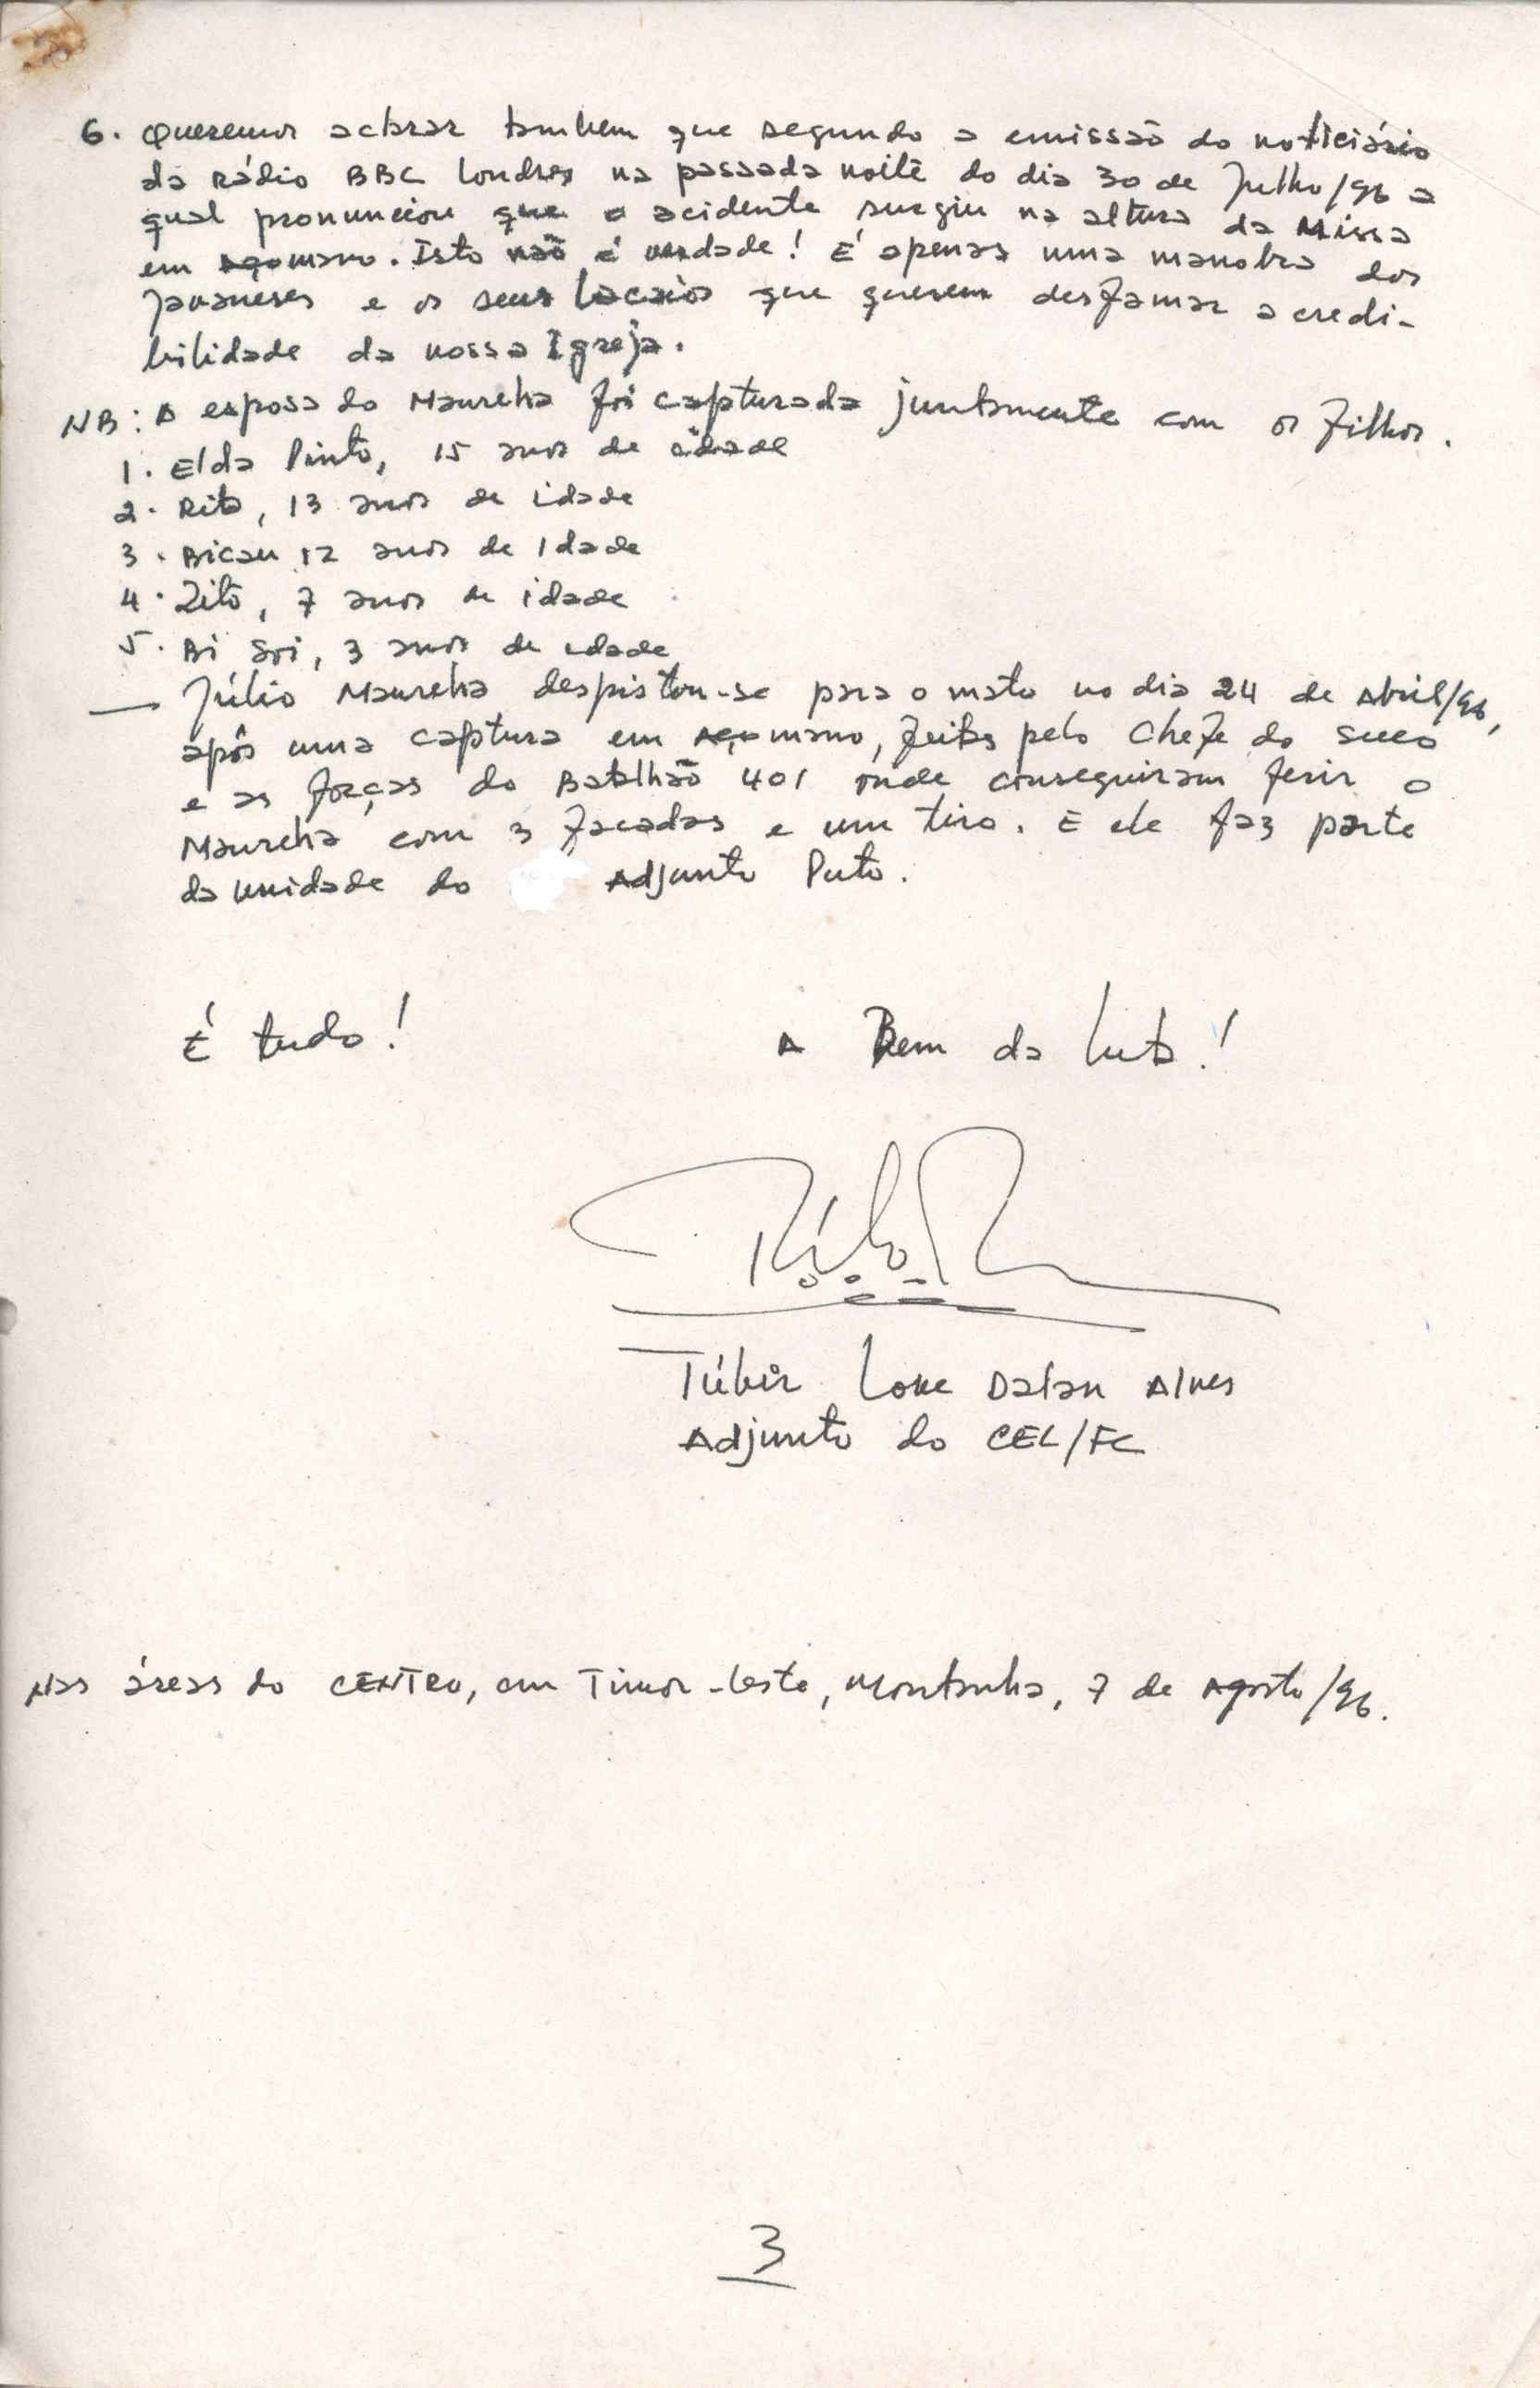 6. Queremos aclarar tambem que segundo a emissão do noticiário
da Rádio BBC Londres na passada noite do dia 30 de Julho/96 a
qual pronunciou que o acidente surgiu na altura da Missa
em Açomano. Isto não é verdade! É apenas uma manobra dos
javaneses e os seus lacaios que querem desfamar a credi-
bilidade da nossa Igreja.
NB: A esposa do Maureha foi capturada juntamente com os filhos.
1. Elda Pinto, 15 anos de idade
2. Rita, 13 anos de idade
3. Bicau 12 anos de Idade
4. Zito, 7 anos de idade
5. Bi Soi, 3 anos de idade
— Júlio Maureha despistou-se para o mato no dia 24 de Abril/96,
após uma captura em Açomano, feitas pelo Chefe do Suco
e as forças do Batalhão 401 onde conseguiram ferir o
Maureha com 3 facadas e um tiro. E ele faz parte
da unidade do Adjunto Puto.
É tudo! A Bem da Luta!
Lone Dalan Alves
Adjunto do CEL/FC
Nas áreas do CENTRO, em Timor-Leste, Montanha, 7 de Agosto/96.
3